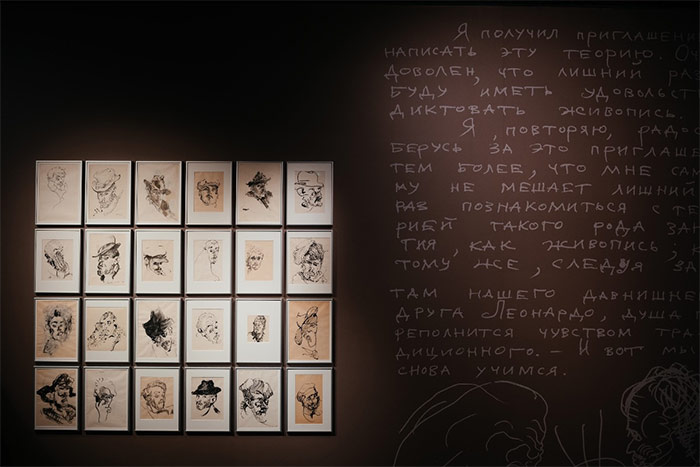 Я получил приглашени
написать эту теорию. Оч
доволен, что лишний ра
буду иметь удовольст
диктовать живопись.
Я, повторяю, радо
берусь за это приглаше
тем более, что мне сам
му не мешает лишний
раз познакомиться с те
рией такого рода зан
тия, как живопись; к
тому же, следуя за
там нашего давнишне
друга Леонардо, душа
реполнится чувством тра
диционного. – И вот мы
снова учимся.